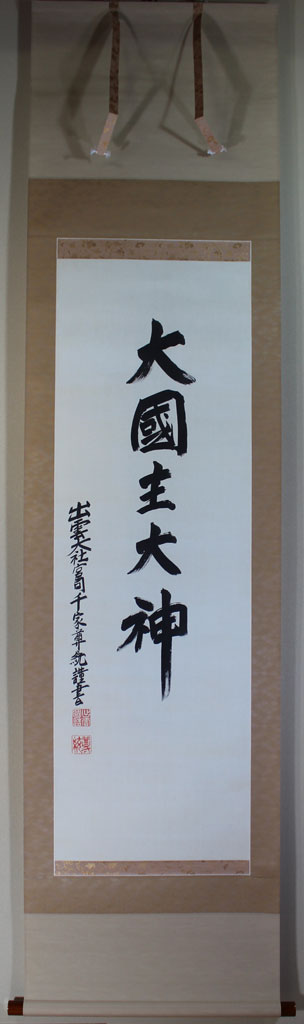 大國主大神
出雲大社宮司千家尊統謹書